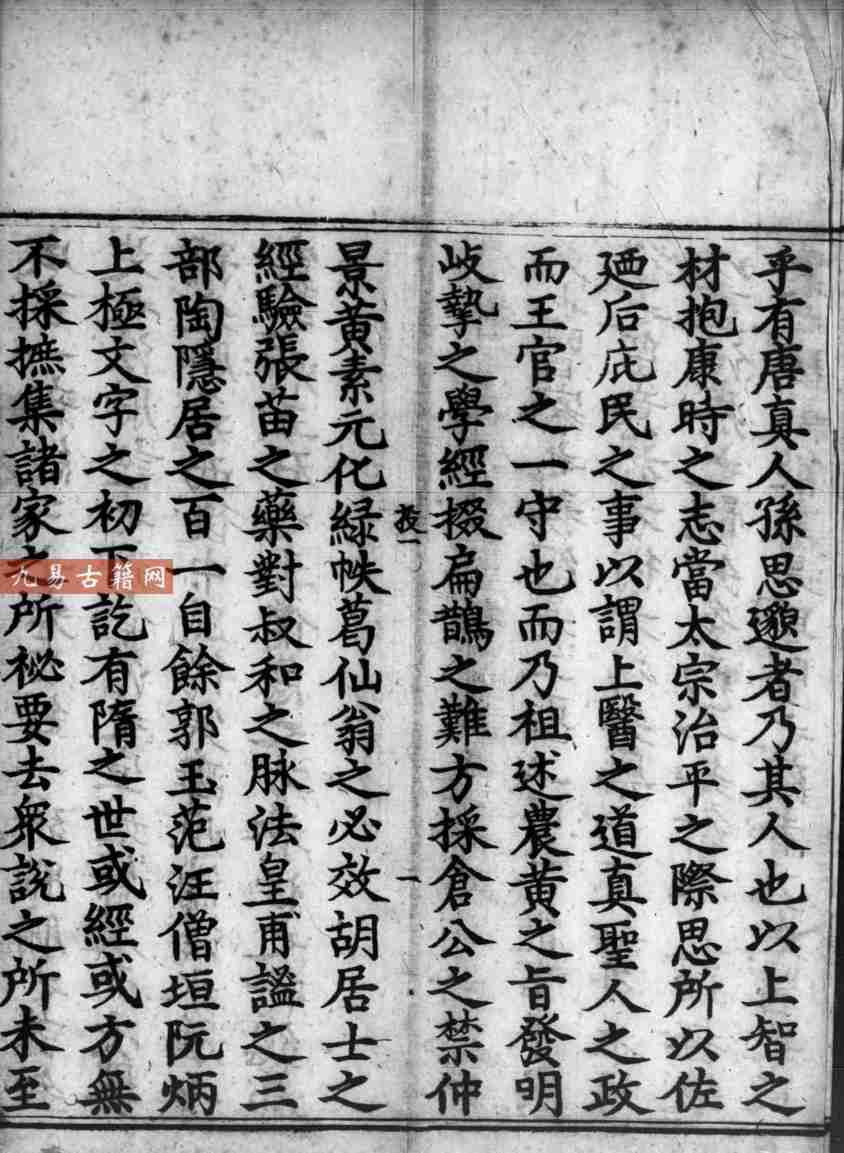 乎有唐真人孫思邈者乃其人也以上智之
材抱康時之志當太宗治平之際思所以佐
廼后庇民之事以謂上醫之道真聖人之政
而王官之一守也而乃祖述農黄之旨發明
岐摯之學經掇扁鵲之難方採倉公之禁仲
一
景黄素元化緑帙葛仙翁之必效胡居士之
經驗張苗之藥對叔和之脉法皇甫謐之三
部陶隱居之百一自餘郭玉范汪僧垣阮炳
上極文字之初下訖有隋之世或經或方無
不採摭集諸家之所祕要去衆說之所未至
九易古籍网